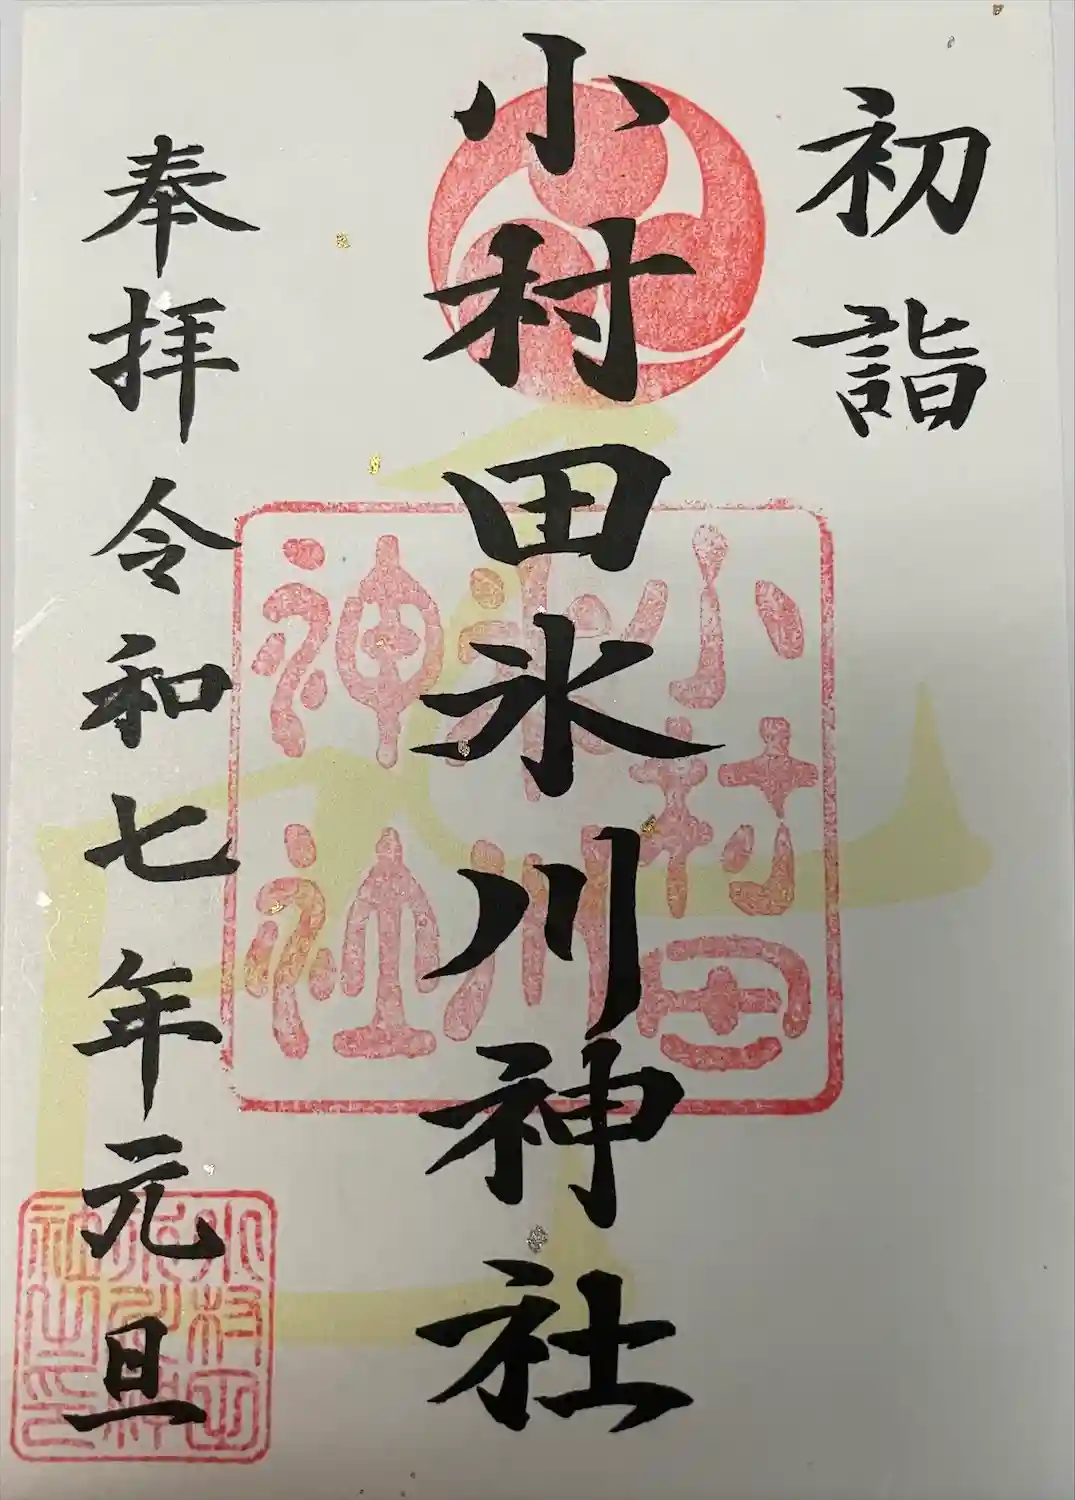 初詣
小村田氷川神社
奉拝 令和七年元旦
小村田
氷川
神社
小村田
氷川神
社之印